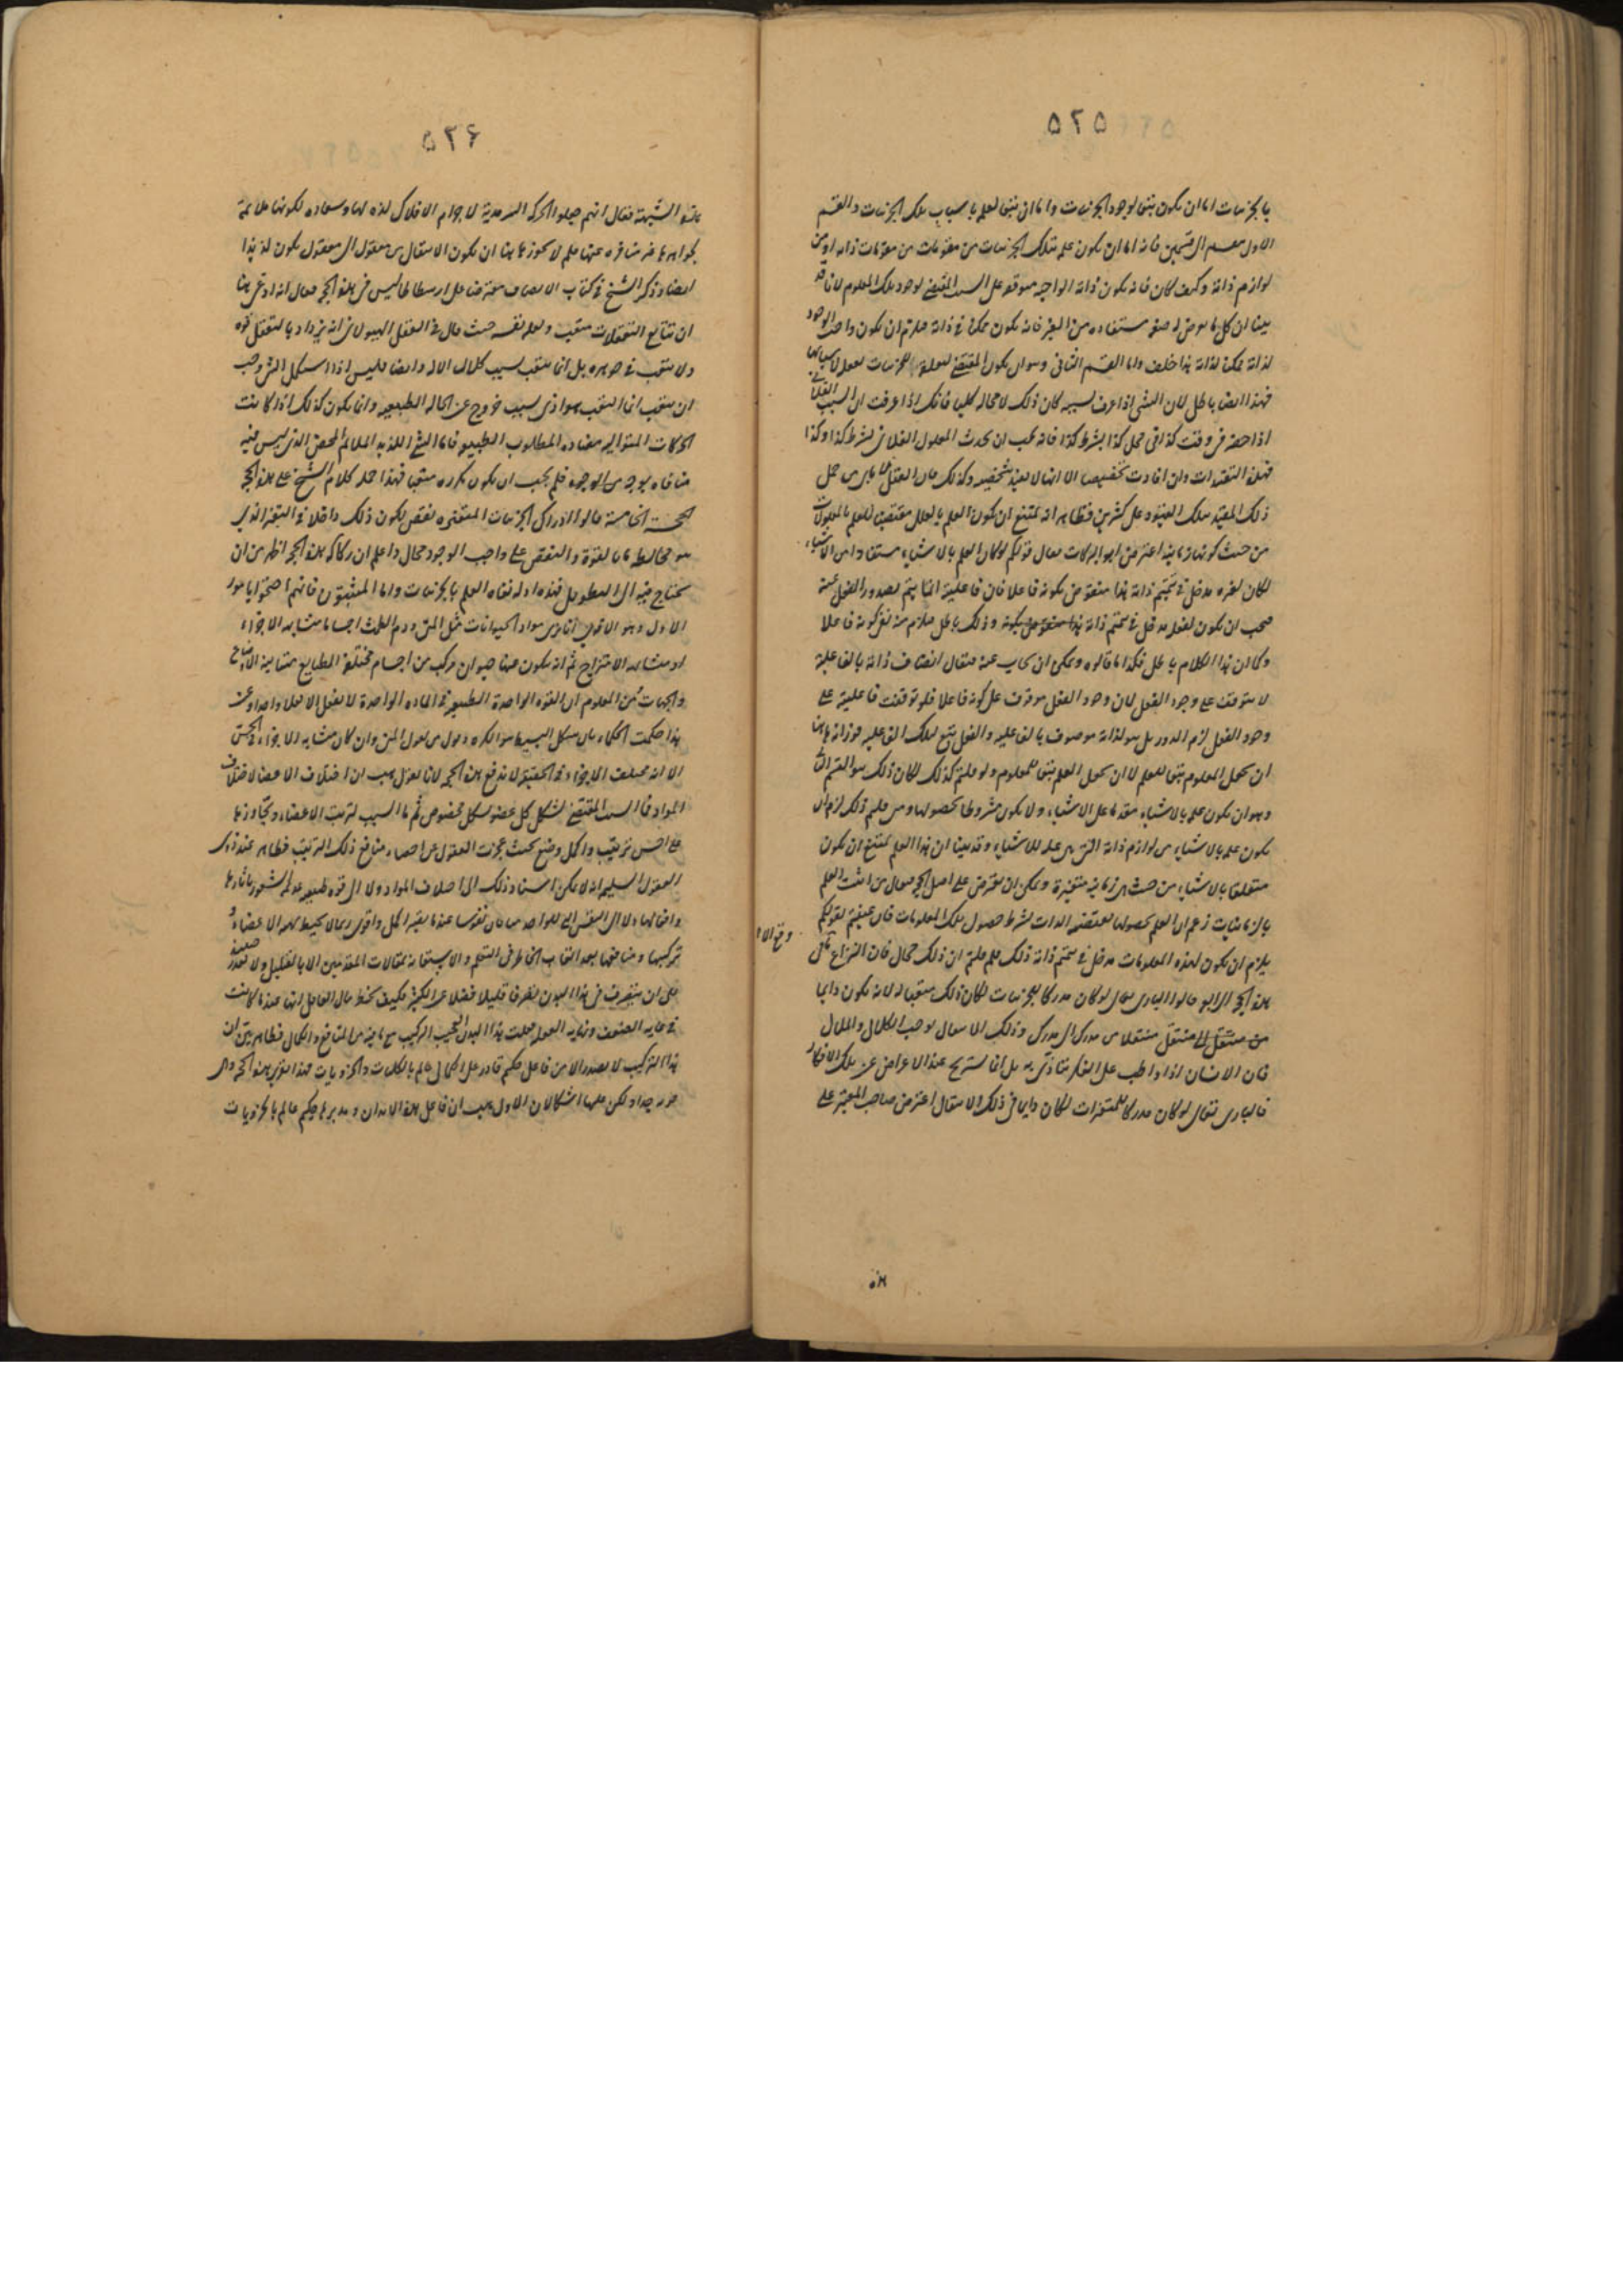 ٥٢٥
بالجزئيات اما ان يكون يتبع لوجود الجزئيات واما ان يتبع لعلمه باسباب تلك الجزئيات والقسم
الاول ينقسم الى قسمين فانه اما ان يكون علمه بتلك الجزئيات من مقومات ذاته او من
لوازم ذاته وكيف كان فانه يكون ذاته الواجبة متوقفة على السبب المقتضى لوجود ذلك المعلوم لانا قد
بينا ان كل ما يعرض له صفة مستفادة من الغير فانه يكون ممكنا فى ذاته فيلزم ان يكون واجب الوجود
لذاته ممكن لذاته هذا خلف واما القسم الثانى وهو ان يكون المقتضى لعلمه بالجزئيات تعقله لاسبابها
فهذا ايضا باطل لان الشى اذا عرف بسببه كان ذلك لا محالة كليا فانك اذا عرفت ان السبب الفلانى
اذا حضر فى وقت كذا فى محل كذا بشرط كذا فانه يجب ان يحدث المعلول الفلانى بشرط كذا وكذا
فهذه التقييدات وان افادت تخصيصا الا انها لا تفيد شخصية وكذلك فان العقل لا يابى من حمل
ذلك المقيد بتلك القيود على كثيرين فظاهر انه يمتنع ان يكون العلم بالعلل مقتضيا للعلم بالمعلولات
من حيث كونها زمانية اعترض ابو البركات فقال قولكم لو كان العلم بالاشياء مستفادا من الاشياء
لكان لغيره مدخل فى تتميم ذاته هذا منقوض بكونه فاعلا فان فاعليته انما يتم بصدور الفعل عنه
فيجب ان يكون لفعله مدخل فى تتميم ذاته وذلك باطل فيلزم منه نفى كونه فاعلا
وكما ان هذا الكلام باطل فكذا ما قالوه ويمكن ان يجاب عنه فيقال اتصاف ذاته بالفاعلية
لا يتوقف على وجود الفعل لان وجود الفعل موقوف على كونه فاعلا فلو توقفت فاعليته على
وجود الفعل لزم الدور بل هو لذاته موصوف بالفاعلية والفعل يتبع تلك الفاعلية فوزانه هاهنا
ان يجعل المعلوم يتبع للعلم لا ان يجعل العلم يتبع للمعلوم ولو قلتم كذلك لكان ذلك هو القسم الثانى
وهو ان يكون علمه بالاشياء مقدما على الاشياء ولا يكون مشروطا بحصولها ومن سلم ذلك لزم ان
يكون علمه بالاشياء من لوازم ذاته التى هى علة للاشياء وقد بينا ان هذا العلم يمتنع ان يكون
متعلقا بالاشياء من حيث هى زمانية متغيرة ويمكن ان يعترض على اصل الحجة فيقال من اثبت العلم
بالزمانيات زعم ان العلم بحصولها مقتضى الذات بشرط حصول تلك المعلومات فان عنيتم بقولكم
يلزم ان يكون لهذه المعلومات مدخل فى تتميم ذاته ذلك فلم قلتم ان ذلك محال فان النزاع
هذه الحجة الرابعة قالوا البارى تعالى لو كان مدركا للجزئيات لكان ذلك متعبا له لانه يكون دايما
منتقلا من مدرك الى مدرك وذلك الانتقال يوجب الكلال والملال
فان الانسان اذا واظب على الفكر يتاذى به بل انما يستريح عند الاعراض عن تلك الافكار
فالبارى تعالى لو كان مدركا للمتغيرات لكان دايما فى ذلك الانتقال اعترض صاحب المعتبر على
وقع الا
هذه
٥٢٦
هذه الشبهة فقال انهم جعلوا الحركة السرمدية لاجرام الافلاك لذة لها وسعادة لكونها ملائمة
لجواهرها غير منافرة عنها فلم لا يجوز هاهنا ان يكون الانتقال من معقول الى معقول يكون لذيذا
ايضا وذكر الشيخ فى كتاب الانصاف معترضا على ارسطاطاليس فى هذه الحجة فقال انه ادعى هاهنا
ان تتابع التعقلات متعب ولعله نفسه حيث قال فى العقل الهيولانى انه يزداد بالتعقل قوة
ولا يتعب فى جوهره بل انما يتعب بسبب كلال الالة وايضا فليس اذا استكمل الشى وجب
ان يتعب انما التعب هو اذى بسبب خروج عن الحالة الطبيعية وانما يكون كذلك اذا كانت
الحركات المتوالية مضادة للمطلوب الطبيعى فاما الشى اللذيذ الملائم المحض الذى ليس فيه
منافاة بوجه من الوجوه فلم يجب ان يكون تكرره متعبا فهذا جملة كلام الشيخ على هذه الحجة
الحجة الخامسة قالوا ادراك الجزئيات المتغيرة نقص لكون ذلك داخلا فى التغير الذى
هو مخالطة ما بالقوة والنقص على واجب الوجود محال واعلم ان ركاكة هذه الحجة اظهر من ان
يحتاج فيه الى التطويل فهذه ادلة نفاة العلم بالجزئيات واما المثبتون فانهم احتجوا بامور
الاول وهو الاقوى انا نرى مواد الحيوانات مثل المنى ودم الطمث اجساما متشابهة الاجزاء
او متشابهة الامتزاج ثم انه يتكون عنها حيوان مركب من اجسام مختلفة الطبايع متباينة الاوضاع
والجهات ومن المعلوم ان القوة الواحدة الطبيعية فى المادة الواحدة لا تفعل الا فعلا واحدا وعن
هذا حكمت الحكماء بان شكل البسيط هو الكرة وقول من يقول المنى وان كان متشابه الاجزاء فى الحس
الا انه مختلف الاجزاء فى الحقيقة لا يدفع هذه الحجة لانا نقول هب ان اختلاف الاعضاء لاختلاف
المواد فما السبب المقتضى لتشكل كل عضو بشكل مخصوص ثم ما السبب لترتيب الاعضاء وتجاورها
على احسن ترتيب واكمل وضع بحيث عجزت العقول عن احصاء منافع ذلك الترتيب فظاهر عند ذوى
العقول السليمة انه لا يمكن اسناد ذلك الى اختلاف المواد ولا الى قوة طبيعية عديمة الشعور باثارها
وافعالها ولا الى النفس التى للواحد منا فان نفوسنا عند ما يصير اكمل واقوى ربما لا يحيط بهذه الاعضاء و
تركيبها ومنافعها بعد اتعاب الخاطر فى التعلم والاستعانة بمقالات المتقدمين الا بالقليل ولا تقدر
على ان يتصرف فى هذا البدن تصرفا قليلا فضلا عن الكثير فكيف يخطر ببال العاقل انها عند ما كانت
فى غاية الضعف ونهاية الغفلة فعلت هذا البدن العجيب التركيب مع ما فيه من المنافع والكمال فظاهر بين ان
هذا التركيب لا يصدر الا من فاعل حكيم قادر على الكمال عالم بالكليات والجزويات فهذا تقرير هذه الحجة وهى
قوية جدا ولكن عليها اشكالان الاول هب ان فاعل هذه الابدان ومدبرها حكيم عالم بالجزويات